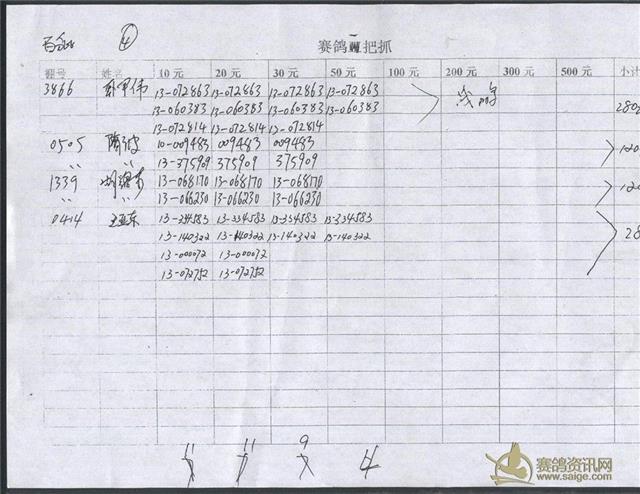 ④
赛鸽 把抓
棚号 姓名 10元 20元 30元 50元 100元 200元 300元 500元 小计
3866 13-072863 13-072863 13-072863 13-072863
13-060383 13-060383 13-060383 13-060383 280
13-072814 13-072814 13-072814
0505 10-009483 009483 009483
〃 〃 13-375909 375909 375909 120
1339 13-068170 13-068170 13-068170
〃 〃 13-066230 13-066230 13-066230 120
0414 王亚东 13-334583 13-334583 13-334583 13-334583
13-140322 13-140322 13-140322 13-140322 28
13-000072 13-000072
13-072752 13-072752
11 11 9 4
赛鸽资讯网
www.saige.com